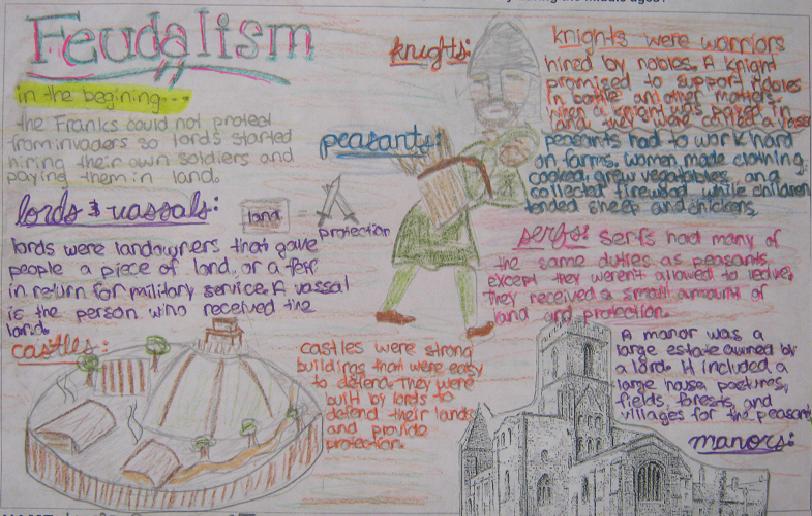 Feudalism
in the begining...
the Franks could not protect
from invaders so lords started
hiring their own soldiers and
paying them in land.
lords & vassals:
land = protection
lords were landowners that gave
people a piece of land, or a feif
in return for military service. A vassal
is the person who received the
land.
castles:
castles were strong
buildings that were easy
to defend. They were
built by lords to
defend their lands
and provide
protection.
knights:
knights were warriors
hired by nobles. A knight
promized to support nobles
in battle and other matters.
when a knight was
land they were called a
peasants:
peasants had to work hard
on farms. women made clothing,
cooked, grew vegetables, and
collected firewood while children
tended sheep and chickens.
serfs: serfs had many of
the same duties as peasants
except they weren't allowed to leave.
they received a small amount of
land and protection.
A manor was a
large estate owned by
a lord. It included a
large house, pastures,
fields, forests, and
villages for the peasant
manors: